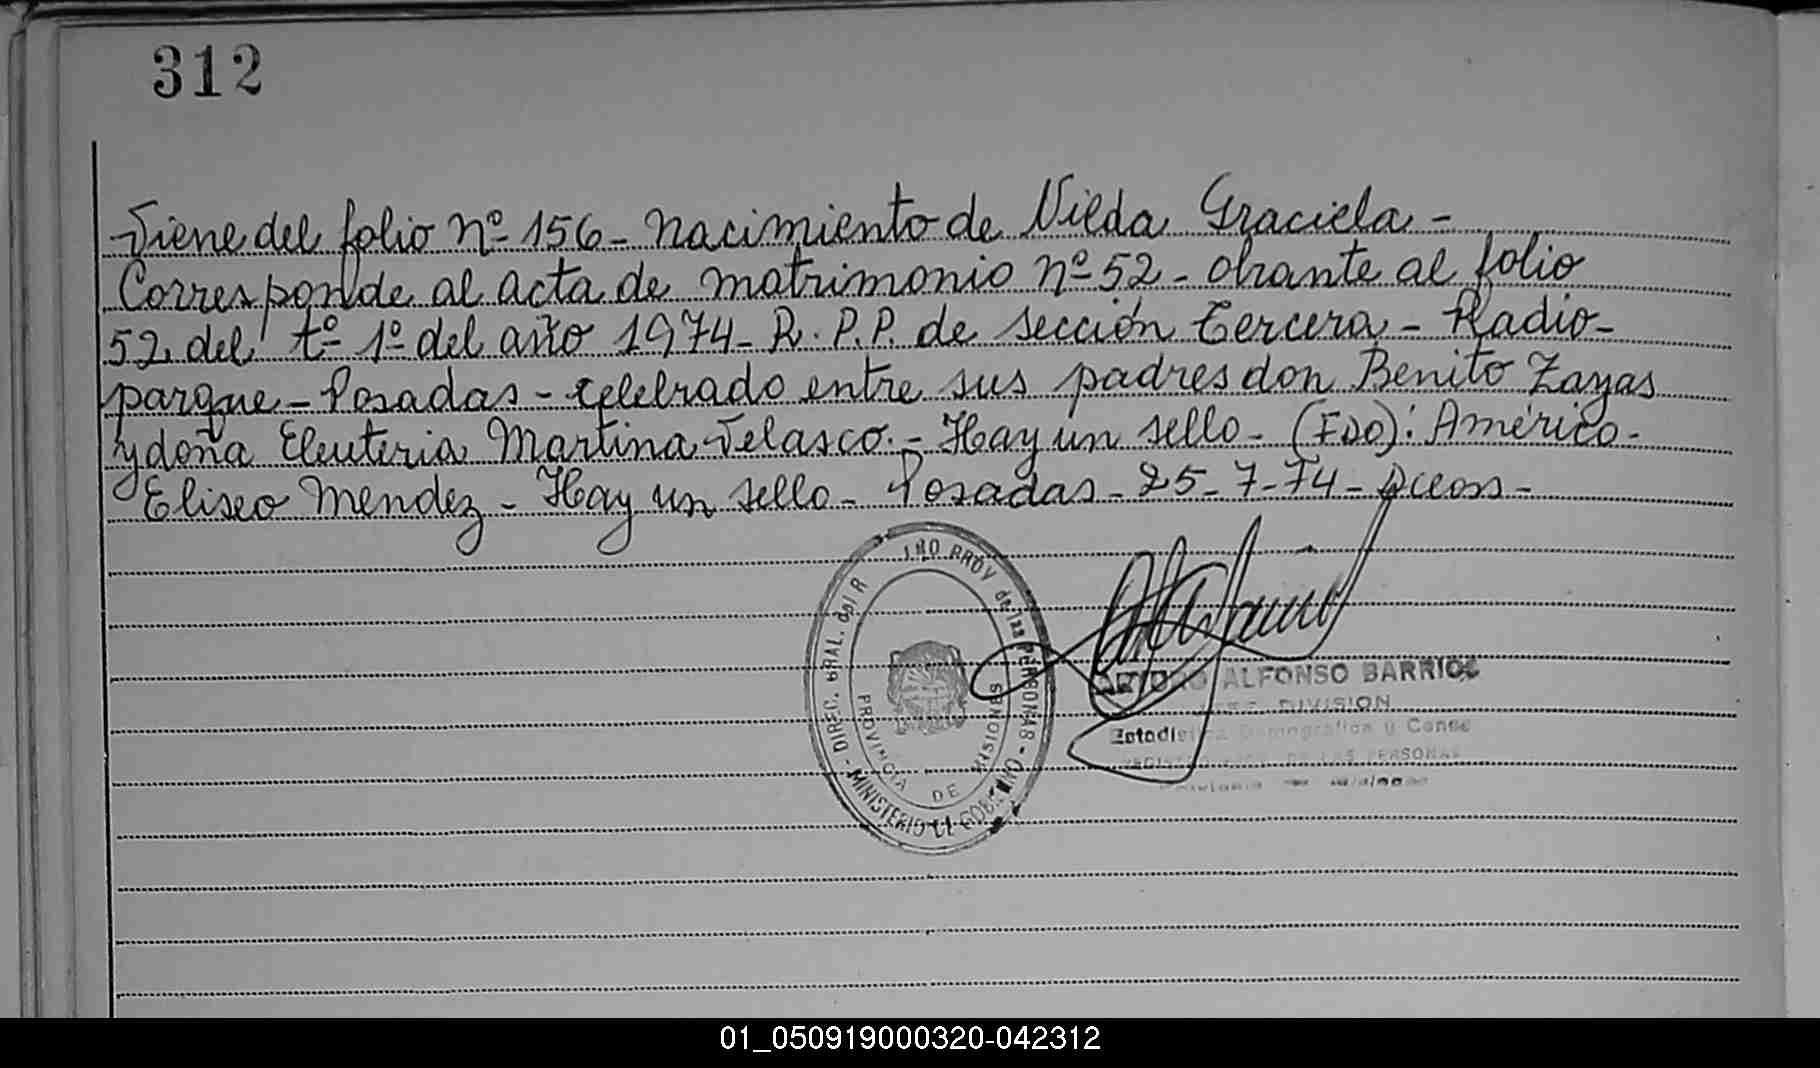 312
Viene del folio nº 156 - Nacimiento de Nilda Graciela -
Corresponde al acta de matrimonio nº 52 - obrante al folio
52 del tº 1º del año 1974 - R. P.P. de sección tercera - Radio-
parque - Posadas - celebrado entre sus padres don Benito Zayas
y doña Eleuteria Martina Velasco. - Hay un sello - (FDO): Américo -
Eliseo Mendez - Hay un sello - Posadas - 25 - 7 - 74 -
DIREC. GRAL. del R
PROV de las PERSONAS - MINISTERIO GOBIERNO
PROVINCIA DE MISIONES
ARTURO ALFONSO BARRIOS
JEFE DIVISION
Estadistica Demografica y Cense
DE LAS PERSONAS
01_050919000320-042312